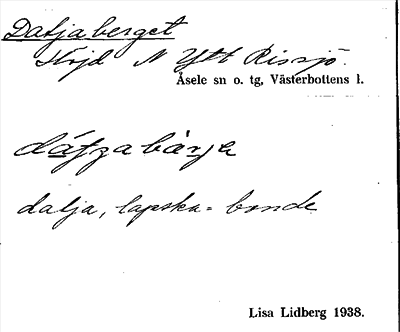 Daljaberget
Höjd N Ytt Rissjö.
Åsele sn o. tg, Västerbottens l.
dalja, lapska = bonde
Lisa Lidberg 1938.